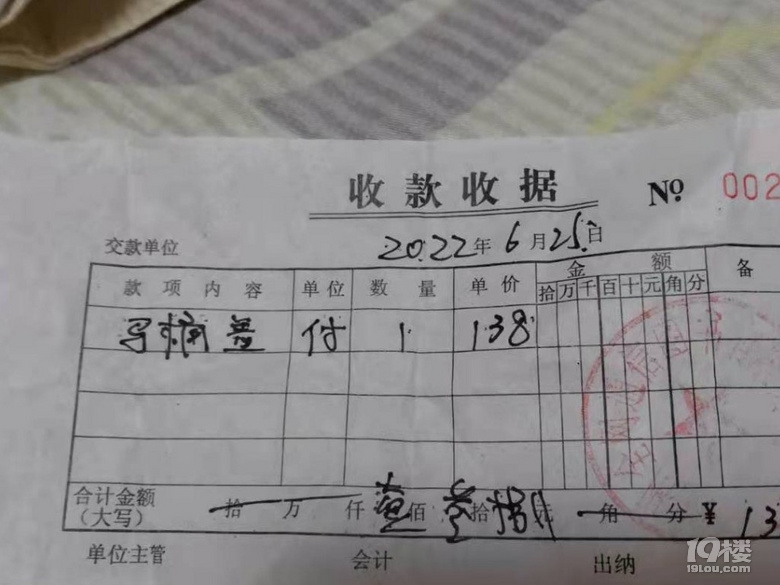 收款收据 № 002
交款单位 2022年6月25日
款项内容 单位 数量 单价 金额 备
拾万千百十元角分
马桶盖 付 1 138
合计金额 拾 万 仟 壹 佰 拾 元 角 分 ¥ 13
(大写)
单位主管 会计 出纳
19楼
19lou.com